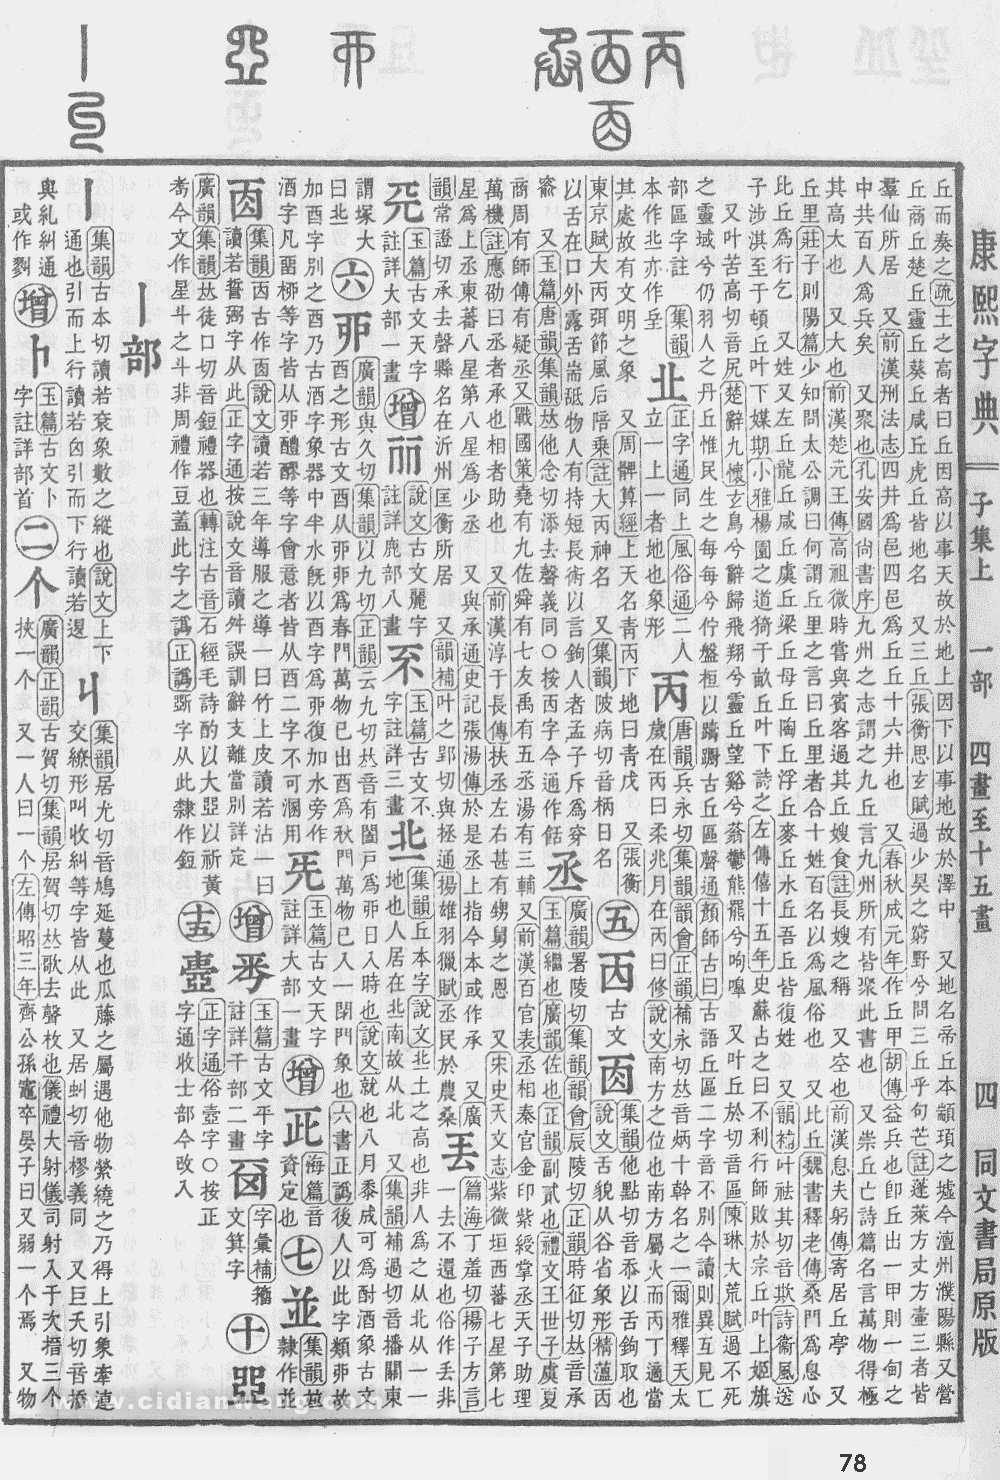 康熙字典
子集上 一部 四畫至十五畫
四 同文書局原版
丘而奏之疏土之高者曰丘因高以事天故於地上因下以事地故於澤中 又地名帝丘本顓頊之墟今澶州濮陽縣又營
丘商丘楚丘靈丘葵丘咸丘虎丘皆地名 又三丘張衡思玄賦過少昊之窮野兮問三丘乎句芒註蓬萊方丈方壷三者皆
羣仙所居 又前漢𠛬法志四井爲邑四邑爲丘丘十六井也 又春秋成元年作丘甲胡傳益兵也卽丘出一甲則一甸之
中共百人爲兵矣 又聚也孔安國尙書序九州之志謂之九丘言九州所有皆聚此書也 又崇丘亡詩篇名言萬物得極
其高大也 又大也前漢楚元王傳高祖微時嘗與賓客過其丘嫂食註長嫂之稱 又空也前漢息夫躬傳寄居丘亭 又
丘里莊子則陽篇少知問太公調曰何謂丘里之言曰丘里者合十姓百名以爲風俗也 又比丘魏書釋老傳桑門爲息心
比丘爲行乞 又姓又左丘龍丘咸丘虞丘梁丘母丘陶丘浮丘麥丘水丘吾丘皆復姓 又韻補叶祛其切音欺詩衞風送
子涉淇至于頓丘叶下媒期小雅楊園之道猗于畝丘叶下詩之左傳僖十五年史蘇占之曰不利行師敗於宗丘叶上姬旗
又叶苦高切音尻楚辭九懷玄鳥兮辭歸飛翔兮靈丘望谿兮蓊鬱熊羆兮呴嘷 又叶丘於切音區陳琳大荒賦過不死
之靈域兮仍羽人之丹丘惟民生之每每兮佇盤桓以躊躕古丘區聲通顏師古曰古語丘區二字音不別今讀則異互見匸
部區字註 集韻
本作北亦作㐀 𠀉 正字通同上風俗通二人
立一上一者地也象形
丙 唐韻兵永切集韻韻會正韻補永切𠀤音炳十幹名之一爾雅釋天太
歲在丙曰柔兆月在丙曰修說文南方之位也南方屬火而丙丁適當
其處故有文明之象 又周髀算經上天名靑丙下地曰靑戊 又張衡
東京賦大丙弭節風后陪乗註大丙神名 又集韻陂病切音柄日名 五 㔷 古文 㐁 集韻他點切音忝以舌鉤取也
說文舌貌从谷省象形精薀㐁
以舌在口外露舌崙䑛物人有持短長術以言鉤人者孟子斥爲穿
窬 又玉篇唐韻集韻𠀤他念切添去聲義同○按㐁字今通作餂
丞 廣韻署陵切集韻韻會辰陵切正韻時征切𠀤音承
玉篇繼也廣韻佐也正韻副貳也禮文王世子虞夏
商周有師傅有疑丞又戰國策堯有九佐舜有七友禹有五丞湯有三輔 又前漢百官表丞相秦官金印紫綬掌丞天子助理
萬機註應劭曰丞者承也相者助也 又前漢淳于長傳扶丞左右甚有甥舅之恩 又宋史天文志紫微垣西蕃七星第七
星爲上丞東蕃八星第八星爲少丞 又與承通史記張湯傳於是丞上指今本或作承 又廣韻集韻常證切承去聲縣名在沂州匡衡所居 又韻補叶之郢切與拯通揚雄羽獵賦丞民於農桑
丟 篇海丁羞切揚子方言
一去不還也俗作丢非
兂 玉篇古文天字
註詳大部一畫 增 丽 說文古文麗字
註詳鹿部八畫 𠀚 玉篇古文不
字註詳三畫 𠀌 集韻丘本字說文土之高也非人爲之从北从一一
地也人居在北南故从北 又集韻補過切音播關東
謂塚大
曰𠀌 六 丣 廣韻與久切集韻以九切正韻云九切𠀤音有闔戶爲丣日入時也說文就也八月黍成可爲酎酒象古文
酉之形古文酉从丣丣爲春門萬物已出酉爲秋門萬物已入一閉門象也六書正譌後人以此字類丣故
加酉字別之酉乃古酒字象器中半水旣以酉字爲丣復加水旁作
酒字凡畱桺等字皆从丣醴醪等字會意者皆从酉二字不可溷用
兲 玉篇古文天字
註詳大部一畫 增 㱔 海篇音
資定也 七 並 集韻𠀤
隸作並
㐁 集韻㐁古作㐁說文讀若三年導服之導一曰竹上皮讀若沾一曰
讀若誓弼字从此正字通按說文音讀舛誤訓辭支離當別詳定
增 𠀟 玉篇古文平字
註詳干部二畫 𠀠 字彙補籀
文箕字 十 㗊
廣韻集韻𠀤徒口切音鋀禮器也轉注古音石經毛詩酌以大斝以祈黃
耈今文作星斗之斗非周禮作豆蓋此字之譌正譌斲字从此隸作鋀
𡔷 壷 正字通俗壺字○按正
字通收士部今改入
丨部
丨 集韻古本切讀若衮象數之縱也說文上下
通也引而上行讀若囟引而下行讀若𨓤
丩 集韻居尤切音鳩延蔓也瓜藤之屬遇他物縈繞之乃得上引象牽連
交繚形叫收糾等字皆从此 又居虯切音樛義同 又巨夭切音蹻
與糺糾通
或作剹 增 卜 玉篇古文卜
字註詳部首 二 个 廣韻正韻古賀切集韻居賀切𠀤歌去聲枚也儀禮大射儀司射入于次搢三个
挾一个 又一人曰一个左傳昭三年齊公孫竈卒晏子曰又弱一个焉 又物
www.cidianwang.com
78